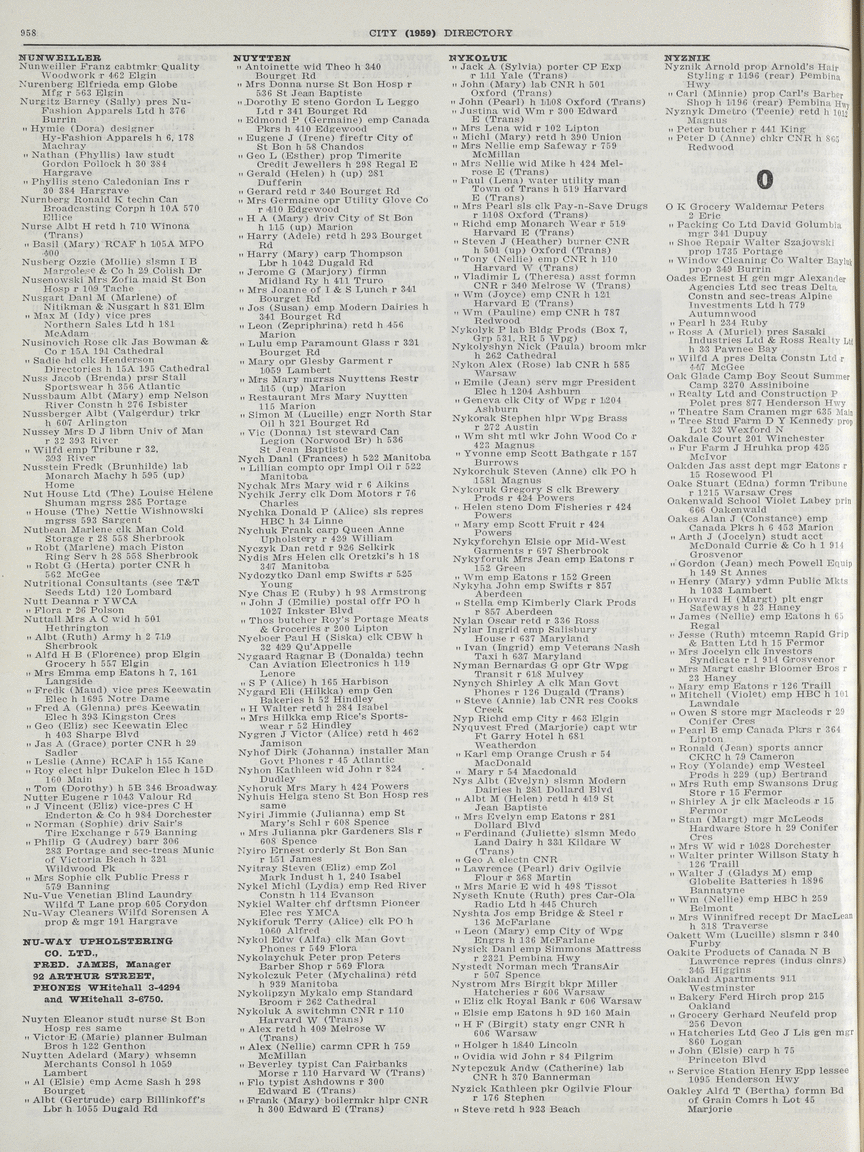 958
CITY (1959) DIRECTORY
NUNWEILLER
Nunweiller Franz cabtmkr Quality
Woodwork r 462 Elgin
Nurenberg Elfrieda emp Globe
Mfg r 563 Elgin
Nurgitz Barney (Sally) pres Nu-
Fashion Apparels Ltd h 376
Burrin
" Hymie (Dora) designer
Hy-Fashion Apparels h 6, 178
Machray
" Nathan (Phyllis) law studt
Gordon Pollock h 30 384
Hargrave
" Phyllis steno Caledonian Ins r
30 384 Hargrave
Nurnberg Ronald K techn Can
Broadcasting Corpn h 10A 570
Ellice
Nurse Albt H retd h 710 Winona
(Trans)
" Basil (Mary) RCAF h 105A MPO
400
Nusberg Ozzie (Mollie) slsmn I B
Margolese & Co h 29 Colish Dr
Nusenowski Mrs Zofia maid St Bon
Hosp r 109 Tache
Nusgart Danl M (Marlene) of
Nitikman & Nusgart h 831 Elm
" Max M (Idy) vice pres
Northern Sales Ltd h 181
McAdam
Nusinovich Rose clk Jas Bowman &
Co r 15A 191 Cathedral
" Sadie hd clk Henderson
Directories h 15A 195 Cathedral
Nuss Jacob (Brenda) pres Stall
Sportswear h 356 Atlantic
Nussbaum Albt (Mary) emp Nelson
River Constn h 276 Isbister
Nussberger Albt (Valgerdur) trkr
h 607 Arlington
Nussey Mrs D J librn Univ of Man
r 32 393 River
" Wilfd emp Tribune r 32,
393 River
Nusstein Fredk (Brunhilde) lab
Monarch Machy h 595 (up)
Home
Nut House Ltd (The) Louise Helene
Shuman mgress 285 Portage
" House (The) Nettie Wishnowski
mgress 593 Sargent
Nutbean Marlene clk Man Cold
Storage r 28 558 Sherbrook
" Robt (Marlene) mach Piston
Ring Serv h 28 558 Sherbrook
" Robt G (Herta) porter CNR h
562 McGee
Nutritional Consultants (see T&T
Seeds Ltd) 120 Lombard
Nutt Deanna r YWCA
" Flora r 26 Polson
Nuttall Mrs A C wid h 501
Hethrington
" Albt (Ruth) Army h 2 719
Sherbrook
" Alfd H B (Florence) prop Elgin
Grocery h 557 Elgin
" Mrs Emma emp Eatons h 7, 161
Langside
" Fredk (Maud) vice pres Keewatin
Elec h 1695 Notre Dame
" Fred A (Glenna) pres Keewatin
Elec h 393 Kingston Cres
" Geo (Eliz) sec Keewatin Elec
h 403 Sharpe Blvd
" Jas A (Grace) porter CNR h 29
Sadler
" Leslie (Anne) RCAF h 155 Kane
" Roy elect hlpr Dukelon Elec h 15D
160 Main
" Tom (Dorothy) h 5B 346 Broadway
Nutter Eugene r 1043 Valour Rd
" J Vincent (Eliz) vice-pres C H
Enderton & Co h 984 Dorchester
" Norman (Sophie) driv Sair's
Tire Exchange r 579 Banning
" Philip G (Audrey) barr 306
283 Portage and sec-treas Munic
of Victoria Beach h 321
Wildwood Pk
" Mrs Sophie clk Public Press r
579 Banning
Nu-Vue Venetian Blind Laundry
Wilfd T Lane prop 605 Corydon
Nu-Way Cleaners Wilfd Sorensen A
prop & mgr 191 Hargrave
NU-WAY UPHOLSTERING
CO. LTD.,
FRED. JAMES, Manager
92 ARTHUR STREET,
PHONES WHitehall 3-4294
and WHitehall 3-6750.
Nuyten Eleanor studt nurse St Bon
Hosp res same
" Victor E (Marie) planner Bulman
Bros h 122 Genthon
Nuytten Adelard (Mary) whsemn
Merchants Consol h 1059
Lambert
" Al (Elsie) emp Acme Sash h 298
Bourget
" Albt (Gertrude) carp Billinkoff's
Lbr h 1055 Dugald Rd
NUYTTEN
" Antoinette wid Theo h 340
Bourget Rd
" Mrs Donna nurse St Bon Hosp r
536 St Jean Baptiste
" Dorothy E steno Gordon L Leggo
Ltd r 341 Bourget Rd
" Edmond P (Germaine) emp Canada
Pkrs h 410 Edgewood
" Eugene J (Irene) fireftr City of
St Bon h 58 Chandos
" Geo L (Esther) prop Timerite
Credit Jewellers h 298 Regal E
" Gerald (Helen) h (up) 281
Dufferin
" Gerard retd r 340 Bourget Rd
" Mrs Germaine opr Utility Glove Co
r 410 Edgewood
" H A (Mary) driv City of St Bon
h 115 (up) Marion
" Harry (Adele) retd h 293 Bourget
Rd
" Harry (Mary) carp Thompson
Lbr h 1042 Dugald Rd
" Jerome G (Marjory) firmn
Midland Ry h 411 Truro
" Mrs Joanne of I & S Lunch r 341
Bourget Rd
" Jos (Susan) emp Modern Dairies h
341 Bourget Rd
" Leon (Zepriphrina) retd h 456
Marion
" Lulu emp Paramount Glass r 321
Bourget Rd
" Mary opr Glesby Garment r
1059 Lambert
" Mrs Mary mgrss Nuyttens Restr
115 (up) Marion
" Restaurant Mrs Mary Nuytten
115 Marion
" Simon M (Lucille) engr North Star
Oil h 321 Bourget Rd
" Vic (Donna) 1st steward Can
Legion (Norwood Br) h 536
St Jean Baptiste
Nych Dani (Frances) h 522 Manitoba
" Lillian compto opr Impl Oil r 522
Manitoba
Nychak Mrs Mary wid r 6 Aikins
Nychik Jerry clk Dom Motors r 76
Charles
Nychka Donald P (Alice) sls repres
HBC h 34 Linne
Nychuk Frank carp Queen Anne
Upholstery r 429 William
Nyczyk Dan retd r 926 Selkirk
Nydis Mrs Helen clk Oretzki's h 18
347 Manitoba
Nydozytko Danl emp Swifts r 525
Young
Nye Chas E (Ruby) h 98 Armstrong
" John J (Emilie) postal offr PO h
1027 Inkster Blvd
" Thos butcher Roy's Portage Meats
& Groceries r 200 Lipton
Nyeboer Paul H (Siska) clk CBW h
32 429 Qu'Appelle
Nygaard Ragnar B (Donalda) techn
Can Aviation Electronics h 119
Lenore
" S P (Alice) h 165 Harbison
Nygard Eli (Hilkka) emp Gen
Bakeries h 52 Hindley
" H Walter retd h 284 Isabel
" Mrs Hilkka emp Rice's Sports-
wear r 52 Hindley
Nygren J Victor (Alice) retd h 462
Jamison
Nyhof Dirk (Johanna) installer Man
Govt Phones r 45 Atlantic
Nyhon Kathleen wid John r 824
Dudley
Nyhoruk Mrs Mary h 424 Powers
Nyhuis Helga steno St Bon Hosp res
same
Nyiri Jimmie (Julianna) emp St
Mary's Schl r 608 Spence
" Mrs Julianna pkr Gardeners Sls r
608 Spence
Nyiro Ernest orderly St Bon San
r 151 James
Nyitray Steven (Eliz) emp Zol
Mark Indust h 1, 240 Isabel
Nykel Michl (Lydia) emp Red River
Constn h 114 Evanson
Nykiel Walter chf drftsmn Pioneer
Elec res YMCA
Nykiforuk Terry (Alice) clk PO h
1060 Alfred
Nykol Edw (Alfa) clk Man Govt
Phones r 549 Flora
Nykolaychuk Peter prop Peters
Barber Shop r 569 Flora
Nykolczuk Peter (Mychalina) retd
h 939 Manitoba
Nykolipzyn Mykalo emp Standard
Broom r 262 Cathedral
Nykoluk A switchmn CNR r 110
Harvard W (Trans)
" Alex retd h 409 Melrose W
(Trans)
" Alex (Nellie) carmn CPR h 759
McMillan
" Beverley typist Can Fairbanks
Morse r 110 Harvard W (Trans)
" Flo typist Ashdowns r 300
Edward E (Trans)
" Frank (Mary) boilermkr hlpr CNR
h 300 Edward E (Trans)
NYKOLUK
" Jack A (Sylvia) porter CP Exp
r 111 Yale (Trans)
" John (Mary) lab CNR h 501
Oxford (Trans)
" John (Pearl) h 1108 Oxford (Trans)
" Justina wid Wm r 300 Edward
E (Trans)
" Mrs Lena wid r 102 Lipton
" Michl (Mary) retd h 390 Union
" Mrs Nellie emp Safeway r 759
McMillan
" Mrs Nellie wid Mike h 424 Mel-
rose E (Trans)
" Paul (Lena) water utility man
Town of Trans h 519 Harvard
E (Trans)
" Mrs Pearl sls clk Pay-n-Save Drugs
r 1108 Oxford (Trans)
" Richd emp Monarch Wear r 519
Harvard E (Trans)
" Steven J (Heather) burner CNR
h 501 (up) Oxford (Trans)
" Tony (Nellie) emp CNR h 110
Harvard W (Trans)
" Vladimir L (Theresa) asst formn
CNR r 340 Melrose W (Trans)
" Wm (Joyce) emp CNR h 121
Harvard E (Trans)
" Wm (Pauline) emp CNR h 787
Redwood
Nykolyk P lab Bldg Prods (Box 7,
Grp 531, RR 5 Wpg)
Nykolyshyn Nick (Paula) broom mkr
h 262 Cathedral
Nykon Alex (Rose) lab CNR h 585
Warsaw
" Emile (Jean) serv mgr President
Elec h 1204 Ashburn
" Geneva clk City of Wpg r 1204
Ashburn
Nykorak Stephen hlpr Wpg Brass
r 272 Austin
" Wm sht mtl wkr John Wood Co r
423 Magnus
" Yvonne emp Scott Bathgate r 157
Burrows
Nykorchuk Steven (Anne) clk PO h
1581 Magnus
Nykoruk Gregory S clk Brewery
Prods r 424 Powers
" Helen steno Dom Fisheries r 424
Powers
" Mary emp Scott Fruit r 424
Powers
Nykyforchyn Elsie opr Mid-West
Garments r 697 Sherbrook
Nykyforuk Mrs Jean emp Eatons r
152 Green
" Wm emp Eatons r 152 Green
Nykyha John emp Swifts r 857
Aberdeen
" Stella emp Kimberly Clark Prods
r 857 Aberdeen
Nylan Oscar retd r 336 Ross
Nylar Ingrid emp Salisbury
House r 637 Maryland
" Ivan (Ingrid) emp Veterans Nash
Taxi h 637 Maryland
Nyman Bernardas G opr Gtr Wpg
Transit r 618 Mulvey
Nynych Shirley A clk Man Govt
Phones r 126 Dugald (Trans)
" Steve (Annie) lab CNR res Cooks
Creek
Nyp Richd emp City r 463 Elgin
Nyquvest Fred (Marjorie) capt wtr
Ft Garry Hotel h 681
Weatherdon
" Karl emp Orange Crush r 54
MacDonald
" Mary r 54 Macdonald
Nys Albt (Evelyn) slsmn Modern
Dairies h 281 Dollard Blvd
" Albt M (Helen) retd h 419 St
Jean Baptiste
" Mrs Evelyn emp Eatons r 281
Dollard Blvd
" Ferdinand (Juliette) slsmn Medo
Land Dairy h 331 Kildare W
(Trans)
" Geo A electn CNR
" Lawrence (Pearl) driv Ogilvie
Flour r 368 Martin
" Mrs Marie E wid h 498 Tissot
Nyseth Knute (Ruth) pres Car-Ola
Radio Ltd h 445 Church
Nyshta Jos emp Bridge & Steel r
136 McFarlane
" Leon (Mary) emp City of Wpg
Engrs h 136 McFarlane
Nysick Danl emp Simmons Mattress
r 2321 Pembina Hwy
Nystedt Norman mech TransAir
r 507 Spence
Nystrom Mrs Birgit bkpr Miller
Hatcheries r 606 Warsaw
" Eliz clk Royal Bank r 606 Warsaw
" Elsie emp Eatons h 9D 160 Main
" H F (Birgit) staty engr CNR h
606 Warsaw
" Holger h 1840 Lincoln
" Ovidia wid John r 84 Pilgrim
Nytepczuk Andw (Catherine) lab
CNR h 370 Bannerman
Nyzick Kathleen pkr Ogilvie Flour
r 176 Stephen
" Steve retd h 923 Beach
NYZNIK
Nyznik Arnold prop Arnold's Hair
Styling r 1196 (rear) Pembina
Hwy
" Carl (Minnie) prop Carl's Barber
Shop h 1196 (rear) Pembina Hwy
Nyznyk Dmetro (Teenie) retd h 1012
Magnus
" Peter butcher r 441 King
" Peter D (Anne) chkr CNR h 865
Redwood
O
O K Grocery Waldemar Peters
2 Eric
" Packing Co Ltd David Golumbia
mgr 341 Dupuy
" Shoe Repair Walter Szajowski
prop 1735 Portage
" Window Cleaning Co Walter Bayluk
prop 349 Burrin
Oades Ernest H gen mgr Alexander
Agencies Ltd sec treas Delta
Constn and sec-treas Alpine
Investments Ltd h 779
Autumnwood
" Pearl h 234 Ruby
" Ross A (Muriel) pres Sasaki
Industries Ltd & Ross Realty Ltd
h 33 Pawnee Bay
" Wilfd A pres Delta Constn Ltd r
447 McGee
Oak Glade Camp Boy Scout Summer
Camp 3270 Assiniboine
" Realty Ltd and Construction P
Polet pres 877 Henderson Hwy
" Theatre Sam Cramen mgr 635 Main
" Tree Stud Farm D Y Kennedy prop
Lot 32 Wexford N
Oakdale Court 201 Winchester
" Fur Farm J Hruhka prop 425
McIvor
Oakden Jas asst dept mgr Eatons r
15 Rosewood Pl
Oake Stuart (Edna) formn Tribune
r 1215 Warsaw Cres
Oakenwald School Violet Labey prin
666 Oakenwald
Oakes Alan J (Constance) emp
Canada Pkrs h 6 453 Marion
" Arth J (Jocelyn) studt acct
McDonald Currie & Co h 1 914
Grosvenor
" Gordon (Jean) mech Powell Equip
h 149 St Annes
" Henry (Mary) ydmn Public Mkts
h 1033 Lambert
" Howard H (Margt) plt engr
Safeways h 23 Haney
" James (Nellie) emp Eatons h 65
Regal
" Jesse (Ruth) mtcemn Rapid Grip
& Batten Ltd h 15 Fermor
" Mrs Jocelyn clk Investors
Syndicate r 1 914 Grosvenor
" Mrs Margt cashr Bloomer Bros r
23 Haney
" Mary emp Eatons r 126 Traill
" Mitchell (Violet) emp HBC h 101
Lawndale
" Owen S store mgr Macleods r 29
Conifer Cres
" Pearl B emp Canada Pkrs r 364
Lipton
" Ronald (Jean) sports anncr
CKRC h 79 Cameron
" Roy (Yolande) emp Westeel
Prods h 229 (up) Bertrand
" Mrs Ruth emp Swansons Drug
Store r 15 Fermor
" Shirley A jr clk Macleods r 15
Fermor
" Stan (Margt) mgr McLeods
Hardware Store h 29 Conifer
Cres
" Mrs W wid r 1028 Dorchester
" Walter printer Willson Staty h
126 Traill
" Walter J (Gladys M) emp
Globelite Batteries h 1896
Bannatyne
" Wm (Nellie) emp HBC h 259
Belmont
" Mrs Winnifred recept Dr MacLean
h 318 Traverse
Oakett Wm (Lucille) slsmn r 340
Furby
Oakite Products of Canada N B
Lawrence repres (indus clnrs)
345 Higgins
Oakland Apartments 911
Westminster
" Bakery Ferd Hirch prop 215
Oakland
" Grocery Gerhard Neufeld prop
256 Devon
" Hatcheries Ltd Geo J Lis gen mgr
860 Logan
" John (Elsie) carp h 75
Princeton Blvd
" Service Station Henry Epp lessee
1095 Henderson Hwy
Oakley Alfd T (Bertha) formn Bd
of Grain Comrs h Lot 45
Marjorie